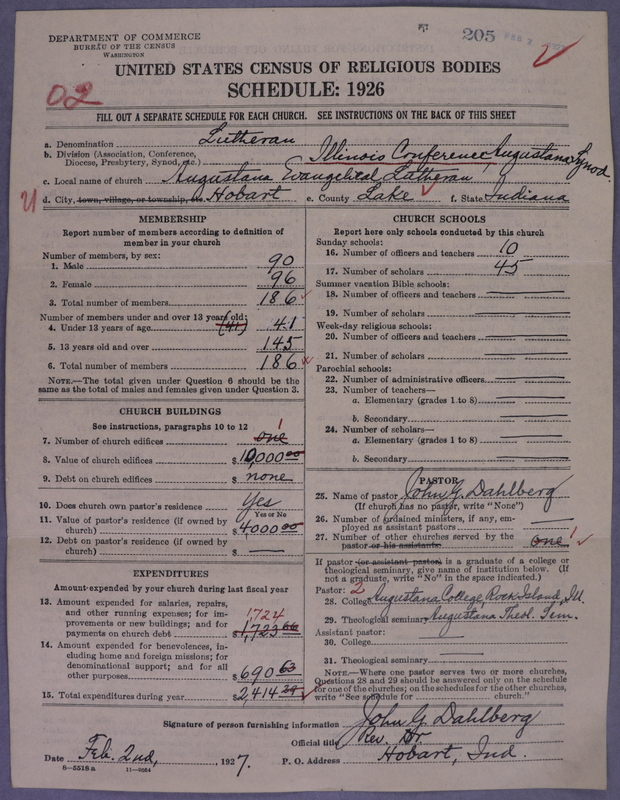 DEPARTMENT OF COMMERCE
BUREAU OF THE CENSUS
WASHINGTON
205
UNITED STATES CENSUS OF RELIGIOUS BODIES
SCHEDULE: 1926
02
FILL OUT A SEPARATE SCHEDULE FOR EACH CHURCH. SEE INSTRUCTIONS ON THE BACK OF THIS SHEET
a. Denomination Lutheran
b. Division (Association, Conference, Diocese, Presbytery, Synod, etc.) Illinois Conference, Augustana Synod.
c. Local name of church Augustana Evangelical Lutheran
d. City, town, village, or township, etc. Hobart e. County Lake f. State Indiana
MEMBERSHIP
Report number of members according to definition of
member in your church
Number of members, by sex:
1. Male 90
2. Female 96
3. Total number of members 186
Number of members under and over 13 years old:
4. Under 13 years of age (41) 41
5. 13 years old and over 145
6. Total number of members 186
NOTE.—The total given under Question 6 should be the
same as the total of males and females given under Question 3.
CHURCH BUILDINGS
See instructions, paragraphs 10 to 12
7. Number of church edifices one 1
8. Value of church edifices $ 10,000 00
9. Debt on church edifices $ none
10. Does church own pastor's residence? Yes
Yes or No
11. Value of pastor's residence (if owned by
church) $ 4000 00
12. Debt on pastor's residence (if owned by
church) $ —
EXPENDITURES
Amount expended by your church during last fiscal year
13. Amount expended for salaries, repairs,
and other running expenses; for im-
provements or new buildings; and for
payments on church debt 1,724 $ 1,723 66
14. Amount expended for benevolences, in-
cluding home and foreign missions; for
denominational support; and for all
other purposes $ 690 63
15. Total expenditures during year $ 2,414 29
CHURCH SCHOOLS
Report here only schools conducted by this church
Sunday schools:
16. Number of officers and teachers 10
17. Number of scholars 45
Summer vacation Bible schools:
18. Number of officers and teachers
19. Number of scholars
Week-day religious schools:
20. Number of officers and teachers
21. Number of scholars
Parochial schools:
22. Number of administrative officers
23. Number of teachers—
a. Elementary (grades 1 to 8)
b. Secondary
24. Number of scholars—
a. Elementary (grades 1 to 8)
b. Secondary
PASTOR
25. Name of pastor John G. Dahlberg
(If church has no pastor, write "None")
26. Number of ordained ministers, if any, em-
ployed as assistant pastors
27. Number of other churches served by the
pastor or his assistants one 1
If pastor (or assistant pastor) is a graduate of a college or
theological seminary, give name of institution below. (If
not a graduate, write "No" in the space indicated.)
Pastor: 2
28. College Augustana College, Rock Island, Ill.
29. Theological seminary Augustana Theol. Sem.
Assistant pastor:
30. College
31. Theological seminary
NOTE.—Where one pastor serves two or more churches,
Questions 28 and 29 should be answered only on the schedule
for one of the churches; on the schedules for the other churches,
write "See schedule for church."
Signature of person furnishing information John G. Dahlberg
Official title Rev. Dr.
Date Feb. 2nd, , 1927. P. O. Address Hobart, Ind.
8—5518 a 11—9064